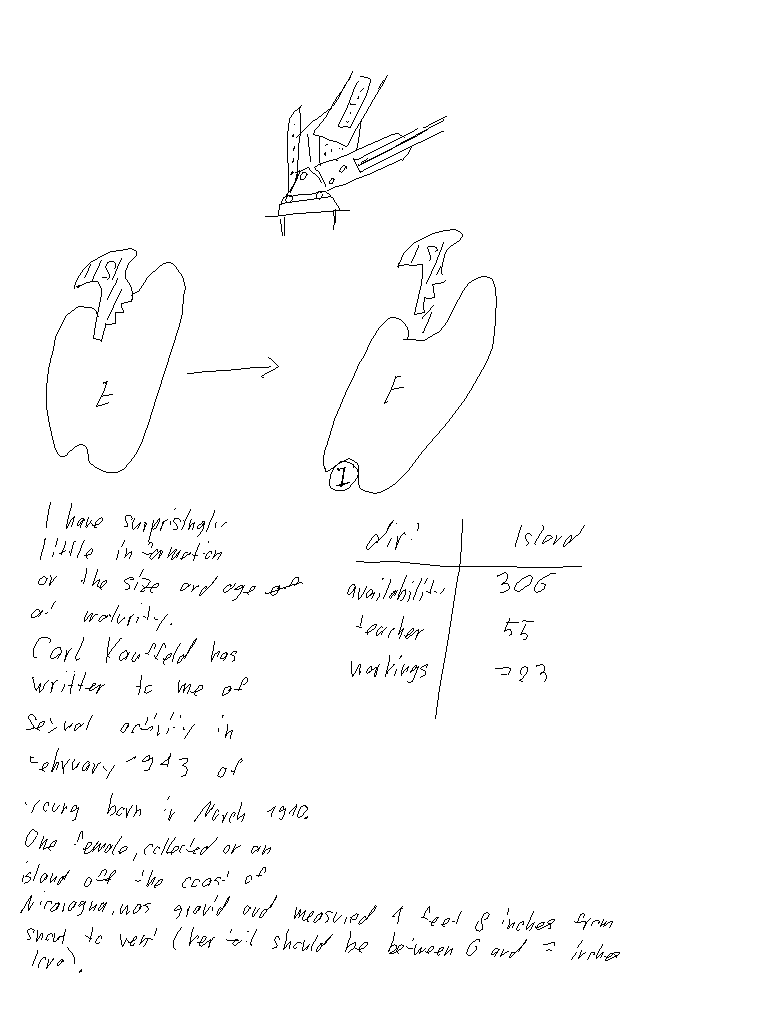 S
S
E
F
I
I have surprisingly
little information
on the size and age
at maturity.
Carl Kauffeld has
written to me of
sexual activity in
February 1943 of
young born in March 1940.
One female, collected on an
island off the coast of
Nicaragua, was gravid and measured 4 feet 8 inches from
snout to vent (her tail should be between 6 and 7 inches
long).
dirt Island
availability 306
teacher 55
workings 723